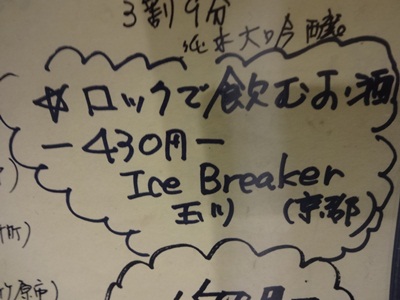 3割9分
純米大吟醸。
☆ロックで飲むお酒
ー430円ー
Ice Breaker
玉川 (京都)
町)
原市)